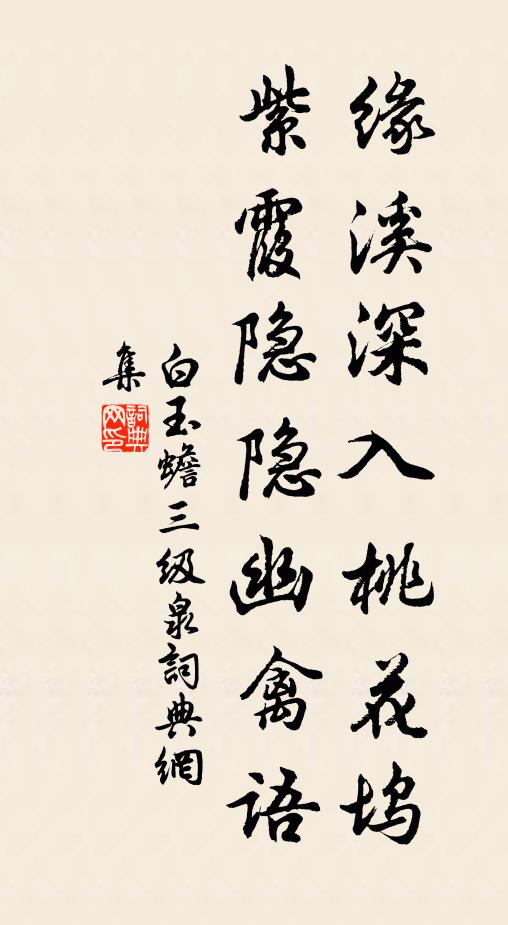 缘溪深入桃花坞
紫霞隐隐幽禽语
白玉蟾三级泉詞典網
集
詞典网印